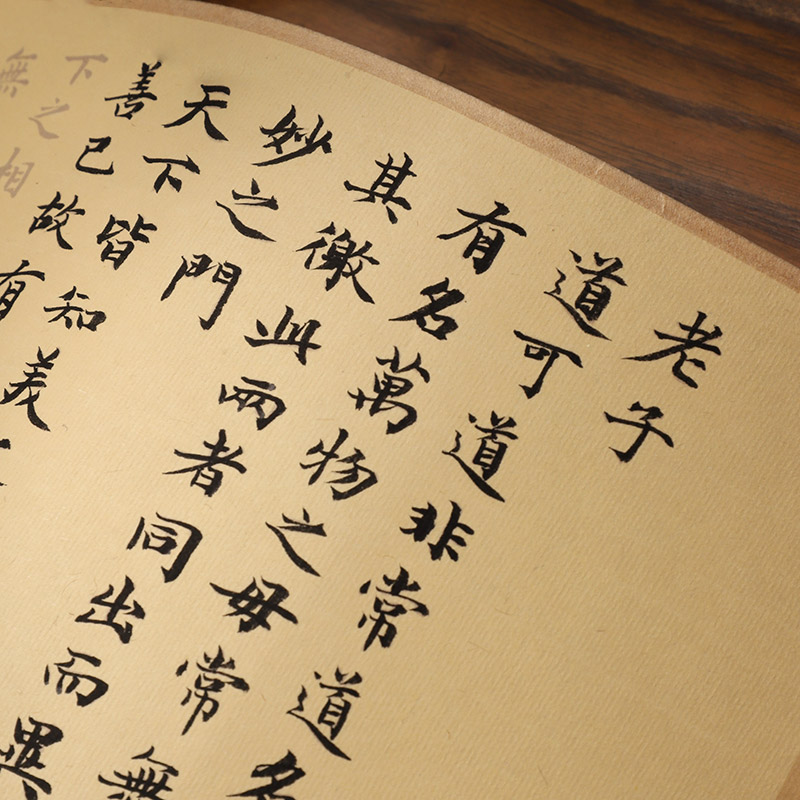 老子
道可道非常道名
有名萬物之母常無
其徼此兩者同出而異
妙之門
天下皆知美
善已故有
下之相
無